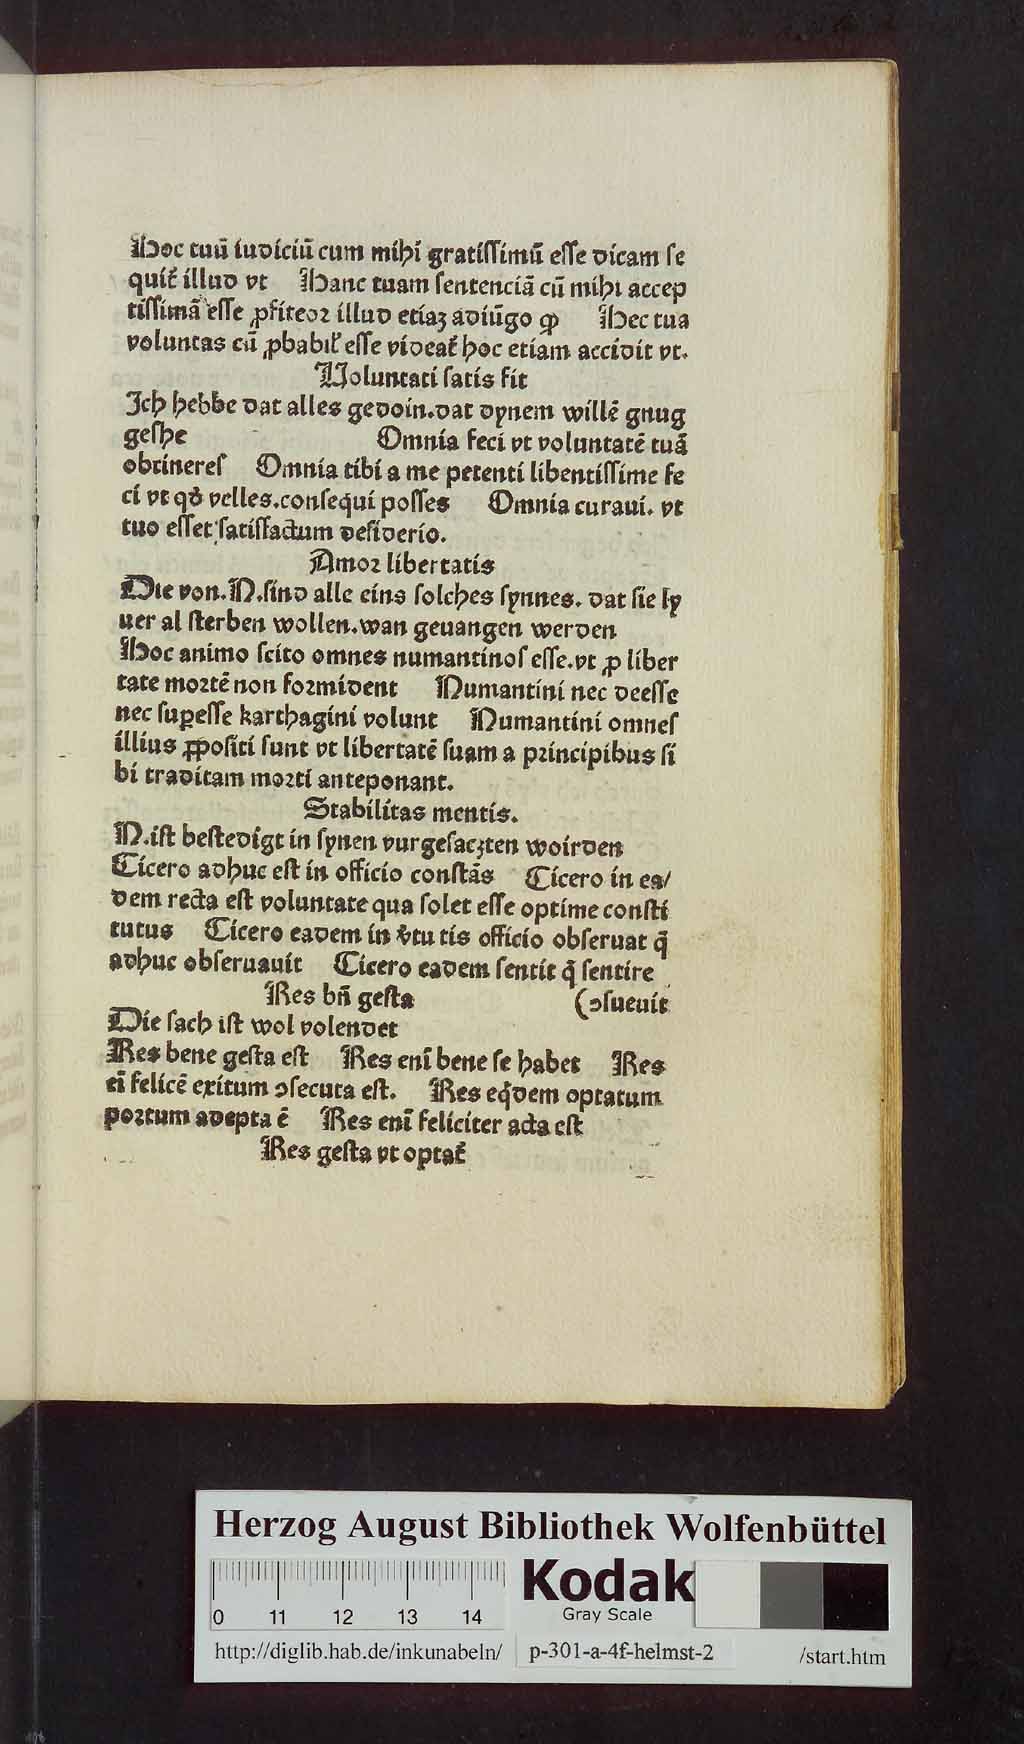 Hoc tuū iudiciū cum mihi gratiſſimū eſſe dicam ſe
quit᷑ illud vt Hanc tuam ſentenciā cū mihi accep
tiſſimā eſſe ꝓfiteoꝛ illud etiaꝫ adiūgo ꝙ Hec tua
voluntas cū ꝓbabil᷑ eſſe videat᷑ hoc etiam accidit vt.
Voluntati ſatis fit
Ich hebbe dat alles gedoin.dat dynem willē gnug
geſhe Omnia feci vt voluntatē tuā
obtinereſ Omnia tibi a me petenti libentiſſime fe
ci vt qđ velles.conſequi poſſes Omnia curaui. vt
tuo eſſet ſatiſfactum deſiderio.
Amoꝛ libertatis
Die von.N.ſind alle eins ſolches ſynnes. dat ſie ly
uer al ſterben wollen.wan geuangen werden
Hoc animo ſcito omnes numantinoſ eſſe.vt ꝓ liber
tate moꝛtē non foꝛmident Numantini nec deeſſe
nec ſuꝑeſſe karthagini volunt Numantini omneſ
illius ꝓpoſiti ſunt vt libertatē ſuam a pꝛincipibus ſi
bi traditam moꝛti anteponant.
Stabilitas mentis.
N.iſt beſtedigt in ſynen vurgeſaczten woirden
Cicero adhuc eſt in officio conſtās Cicero in ea/
dem recta eſt voluntate qua ſolet eſſe optime conſti
tutus Cicero eadem in v̾tutis officio obſeruat q̄
adhuc obſeruauit Cicero eadem ſentit q̄ ſentire
Res bn̄ geſta (ↄſueuit
Die ſach iſt wol volendet
Res bene geſta eſt Res enī bene ſe habet Res
eī felicē exitum ↄſecuta eſt. Res eqͥdem optatum
poꝛtum adepta ē Res enī feliciter acta eſt
Res geſta vt optat᷑
Herzog August Bibliothek Wolfenbüttel
0 11 12 13 14
Kodak
Gray Scale
http://diglib.hab.de/inkunabeln/ p-301-a-4f-helmst-2 /start.htm